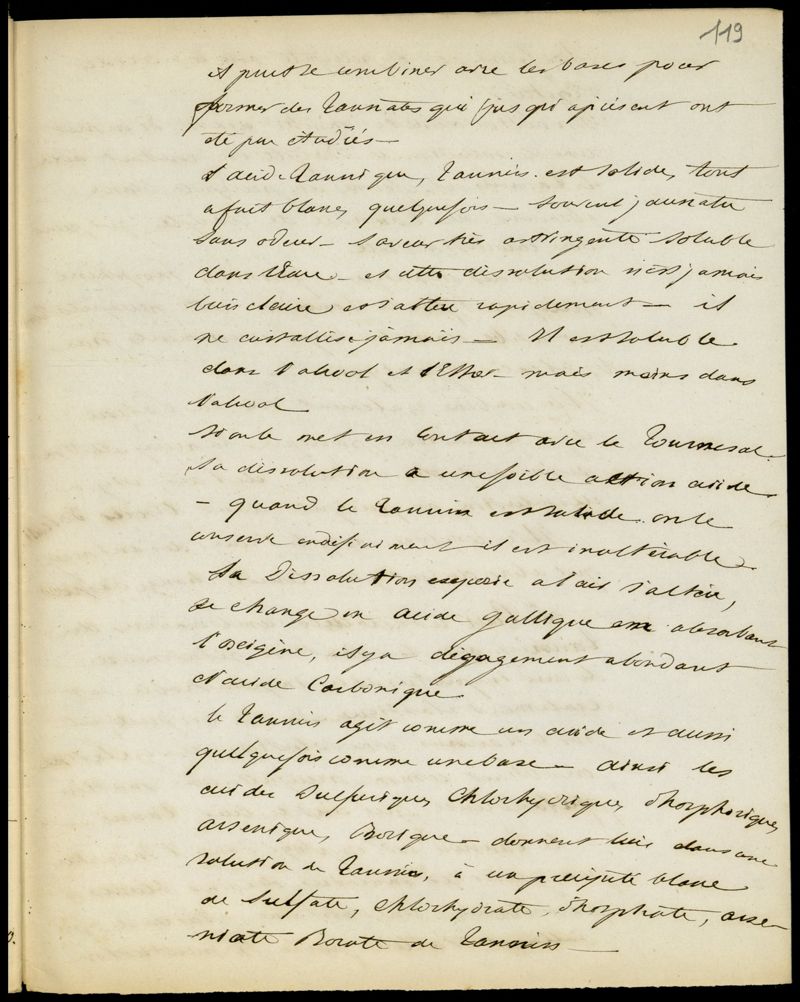 119
et peut se combiner avec les bases pour
former des Tannates qui jusqu'à présent ont
été peu étudiés —
L'acide Tannique, Tannin est solide, tout
a fait blanc, quelquefois — souvent jaunatre
sans odeur — saveur très astringente soluble
dans l'Eau — et cette dissolution n'est jamais
bien claire et s'altère rapidement — il
ne cristallise jamais — Il est soluble
dans l'alcool et l'Ether — mais moins dans
l'alcool
Si on le met en contact avec le Tournesol
sa dissolution a une faible action acide
— quand le Tannin est solide on le
conserve indéfiniment il est inaltérable —
Sa Dissolution exposée a l'air s'altère,
se change en acide gallique en absorbant
l'oxigène, il y a dégagement abondant
d'acide Carbonique
le Tannin agit comme un acide et aussi
quelquefois comme une base — ainsi les
acides Sulfurique, Chlorhydrique, Phosphorique,
arsenique, Borique — donnent lieu dans une
solution de Tannin, à un précipité blanc
de Sulfate, Chlorhydrate, Phosphate, arse-
niate Borate de Tannin —